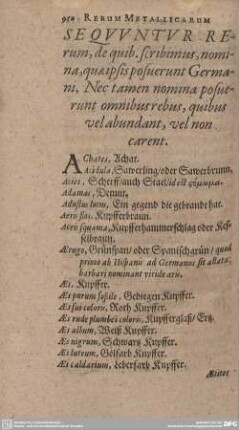 950 RERUM METALLICARUM
SEQVVNTVR RE-
rum, de quib. scribimus, nomi-
na, quæ ipsis posuerunt Germa-
ni. Nec tamen nomina posue-
runt omnibus rebus, quibus
vel abundant, vel non
carent.
AChates, Achat.
Acidula, Sawerling/oder Sawerbrunn.
Acies, Scherff/auch Stael/id est
Adamas, Demut.
Adustus locus, Ein gegend die gebrandt hat.
Aeris flos, Kupfferbraun.
Aeris squama, Kupfferhammerschlag oder Kes-
selbraun.
Ærugo, Grünspan/oder Spanischgrün/quod
primo ab Hispanis ad Germanos sit allata
barbari nominant viride æris.
Æs, Kupffer.
Æs purum fusile, Gediegen Kupffer.
Æs sui coloris, Roth Kupffer.
Æs rude plumbei coloris, Kupfferglaß/Ertz.
Æs album, Weiß Kupffer.
Æs nigrum, Schwartz Kupffer.
Æs luteum, Gelfarb Kupffer.
Æs caldarium, Leberfarb Kupffer.